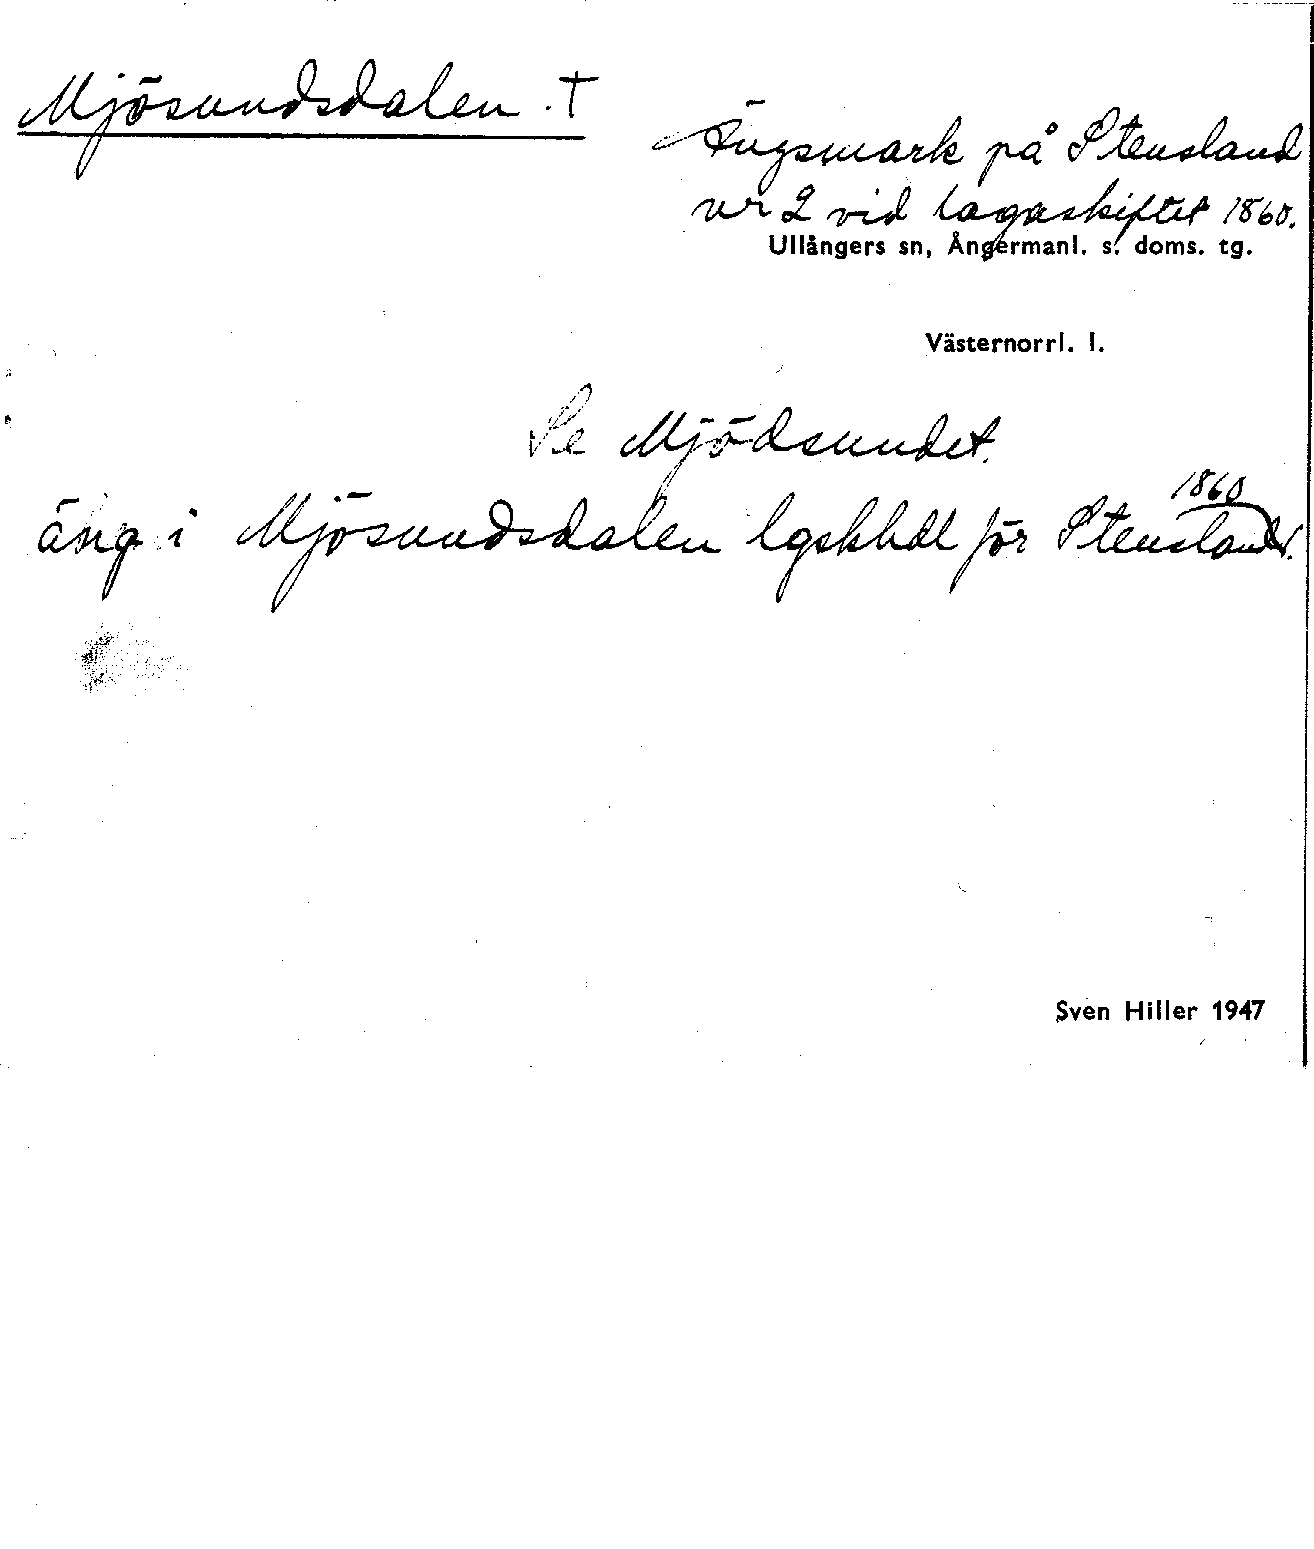 Mjösundsdalen. †
Ängsmark på Stensland
nr 2 vid lagaskiftet 1860.
Ullångers sn, Ångermanl. s. doms. tg.
Västernorrl. l.
Se Mjödsundet.
1860
äng i Mjösundsdalen lgskhdl för Stensland.
Sven Hiller 1947